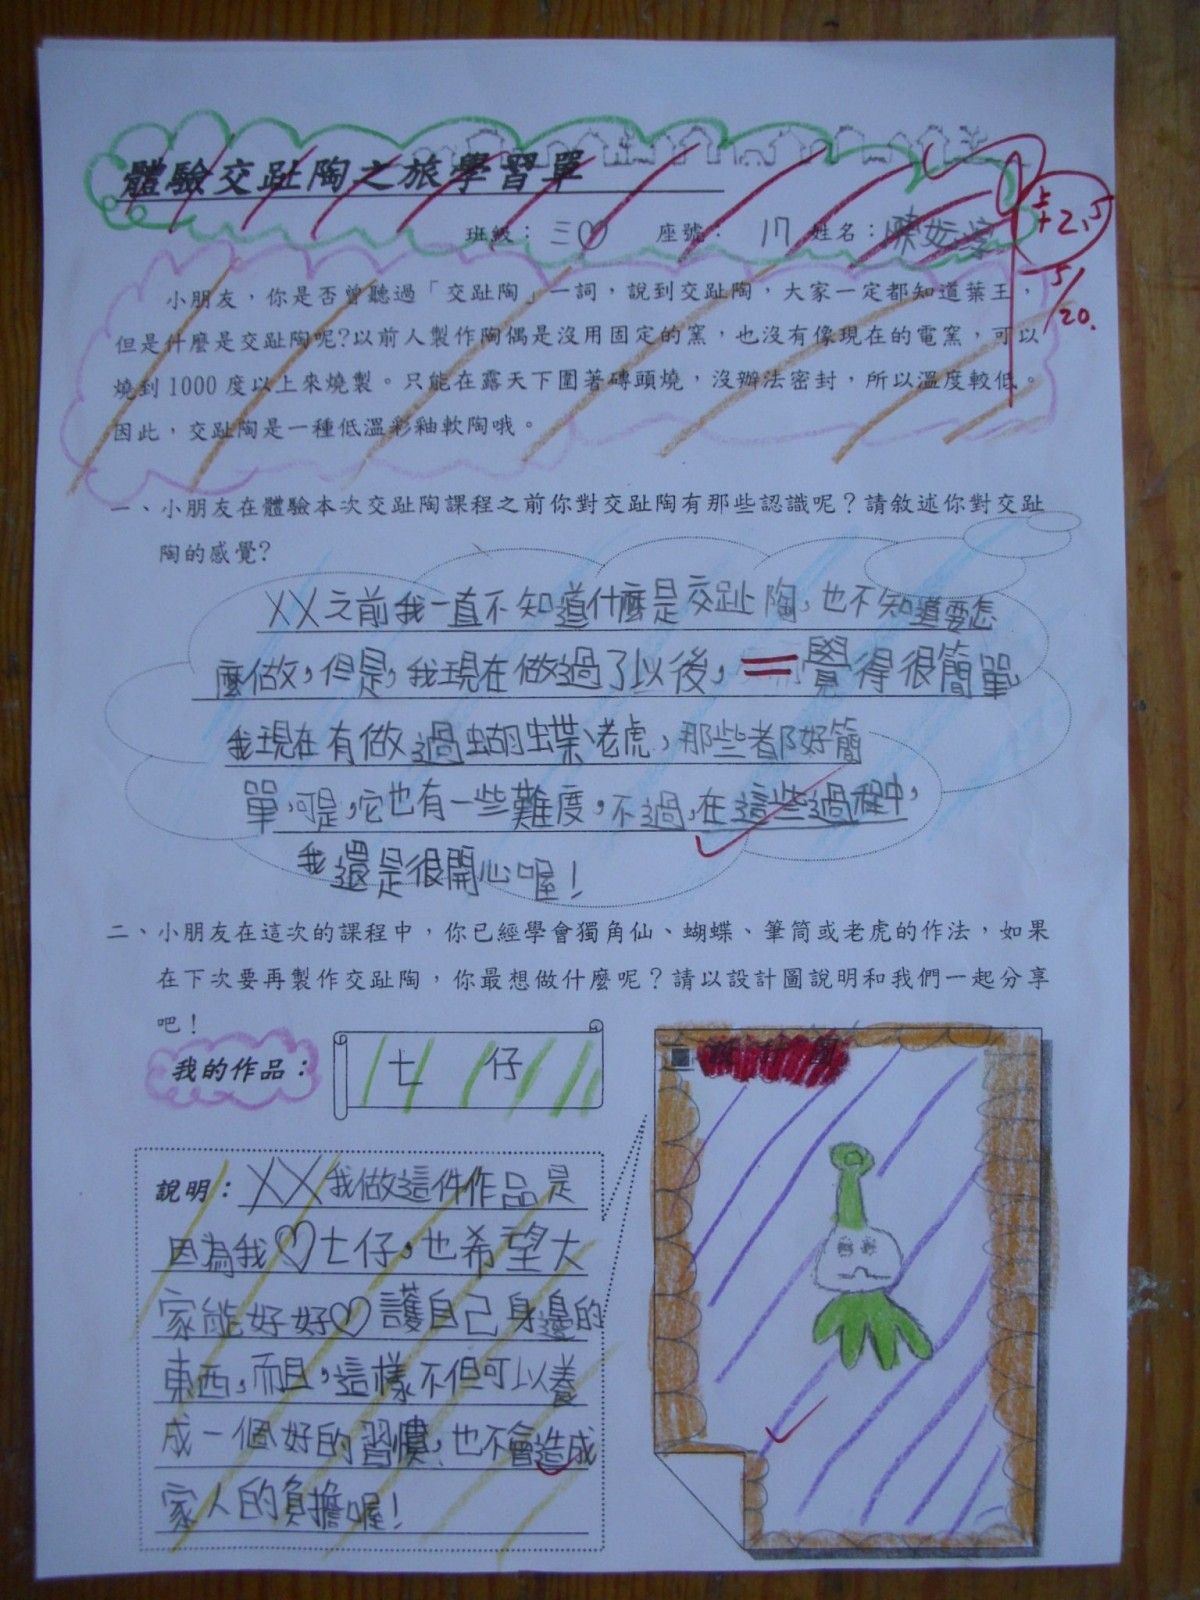 體驗交趾陶之旅學習單
班級：三♡ 座號：17 姓名：陳妘
+2.5
5/20.
小朋友，你是否曾聽過「交趾陶」一詞，說到交趾陶，大家一定都知道葉王，
但是什麼是交趾陶呢?以前人製作陶偶是沒用固定的窯，也沒有像現在的電窯，可以
燒到1000度以上來燒製。只能在露天下圍著磚頭燒，沒辦法密封，所以溫度較低。
因此，交趾陶是一種低溫彩釉軟陶哦。
一、小朋友在體驗本次交趾陶課程之前你對交趾陶有那些認識呢？請敘述你對交趾
陶的感覺?
XX之前我一直不知道什麼是交趾陶，也不知道要怎
麼做，但是，我現在做過了以後，覺得很簡單
我現在有做過蝴蝶、老虎，那些都好簡
單，可是，它也有一些難度，不過，在這些過程中，
我還是很開心喔！
二、小朋友在這次的課程中，你已經學會獨角仙、蝴蝶、筆筒或老虎的作法，如果
在下次要再製作交趾陶，你最想做什麼呢？請以設計圖說明和我們一起分享
吧！
我的作品：七 仔
說明：XX我做這件作品是
因為我♡七仔，也希望大
家能好好♡護自己身邊的
東西，而且，這樣不但可以養
成一個好的習慣，也不會造成
家人的負擔喔！